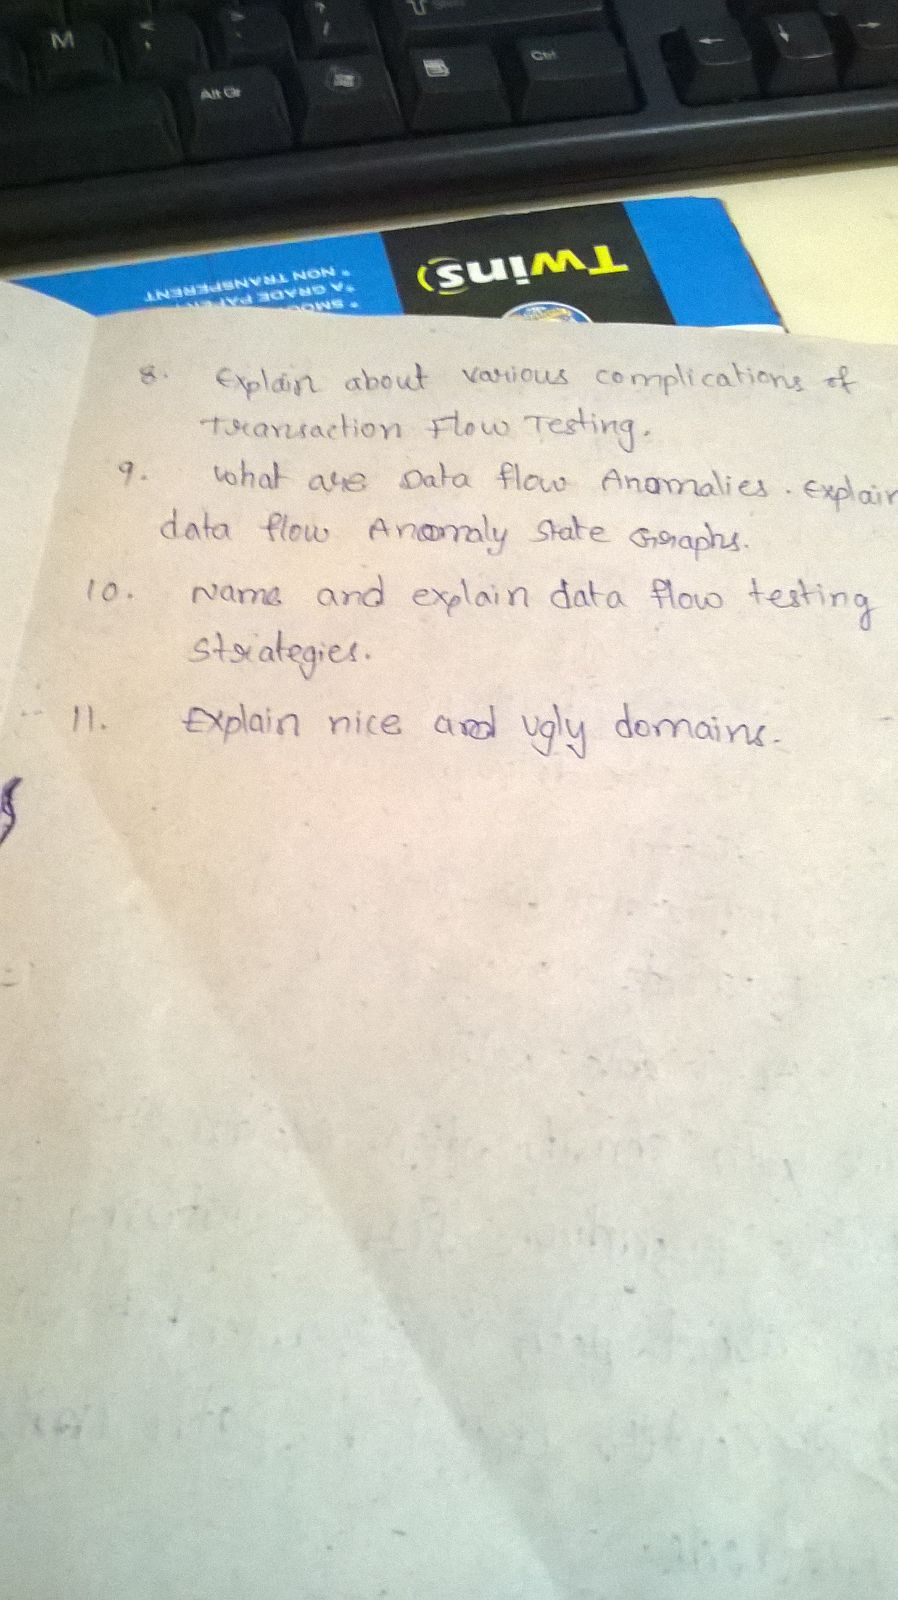 M
Alt Gr
Ctrl
Twins
* NON TRANSPERENT
* A GRADE PAPER
8. Explain about various complications of
Transaction Flow Testing.
9. What are Data flow Anomalies. Explain
data flow Anomaly State Graphs.
10. Name and explain data flow testing
strategies.
11. Explain nice and ugly domains.